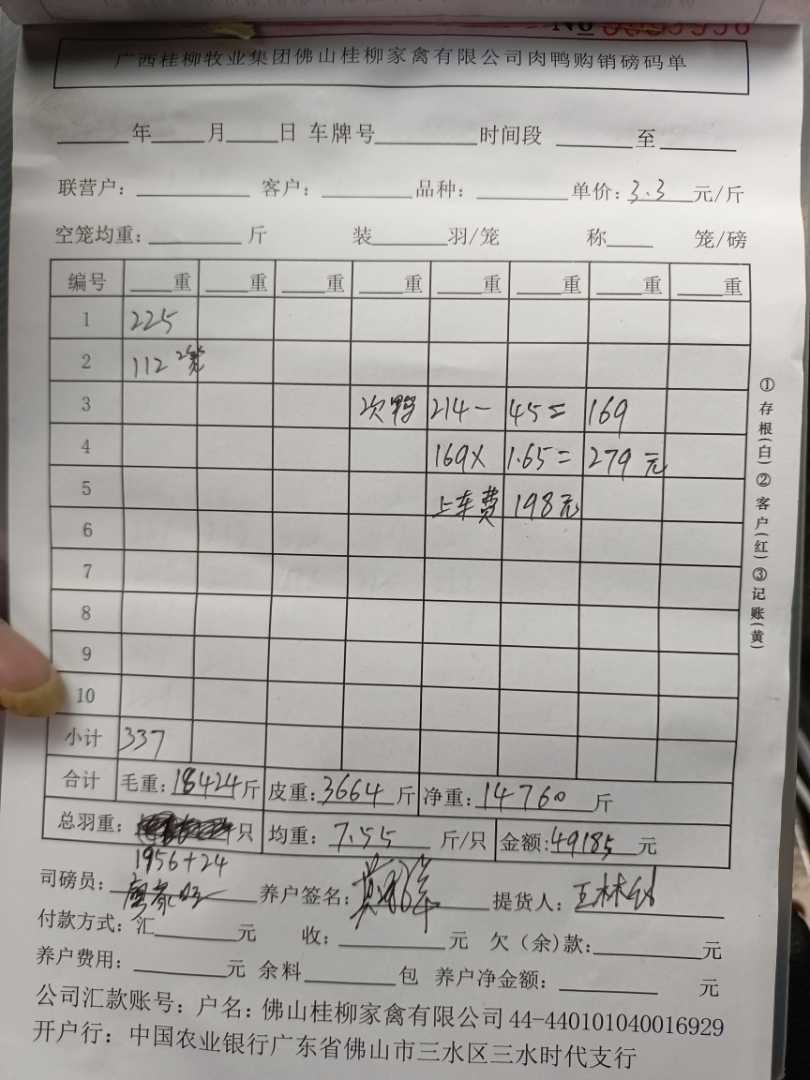 No
广西桂柳牧业集团佛山桂柳家禽有限公司肉鸭购销磅码单
年 月 日 车牌号 时间段 至
联营户: 客户: 品种: 单价: 3.3 元/斤
空笼均重: 斤 装 羽/笼 称 笼/磅
编号 重 重 重 重 重 重 重 重
1 225
2 112
3 次鸭 214- 45= 169
4 169× 1.65= 279元
5 上车费 198元
6
7
8
9
10
小计 337
合计 毛重: 18424 斤 皮重: 3664 斤 净重: 14760 斤
总羽重: 只 均重: 7.55 斤/只 金额: 49185 元
1956+24
司磅员: 养户签名: 提货人: 王林
付款方式: 汇 元 收: 元 欠(余)款: 元
养户费用: 元 余料 包 养户净金额: 元
公司汇款账号: 户名: 佛山桂柳家禽有限公司 44-440101040016929
开户行: 中国农业银行广东省佛山市三水区三水时代支行
①存根(白)②客户(红)③记账(黄)